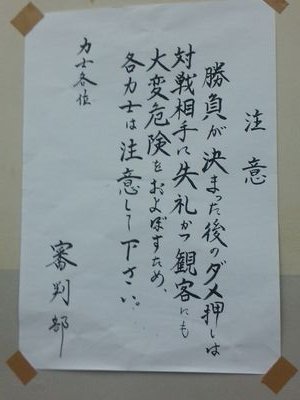 注意
勝負が決まった後のダメ押しは
対戦相手に失礼かつ観客にも
大変危険をおよぼすため、
各力士は注意して下さい。
力士各位
審判部